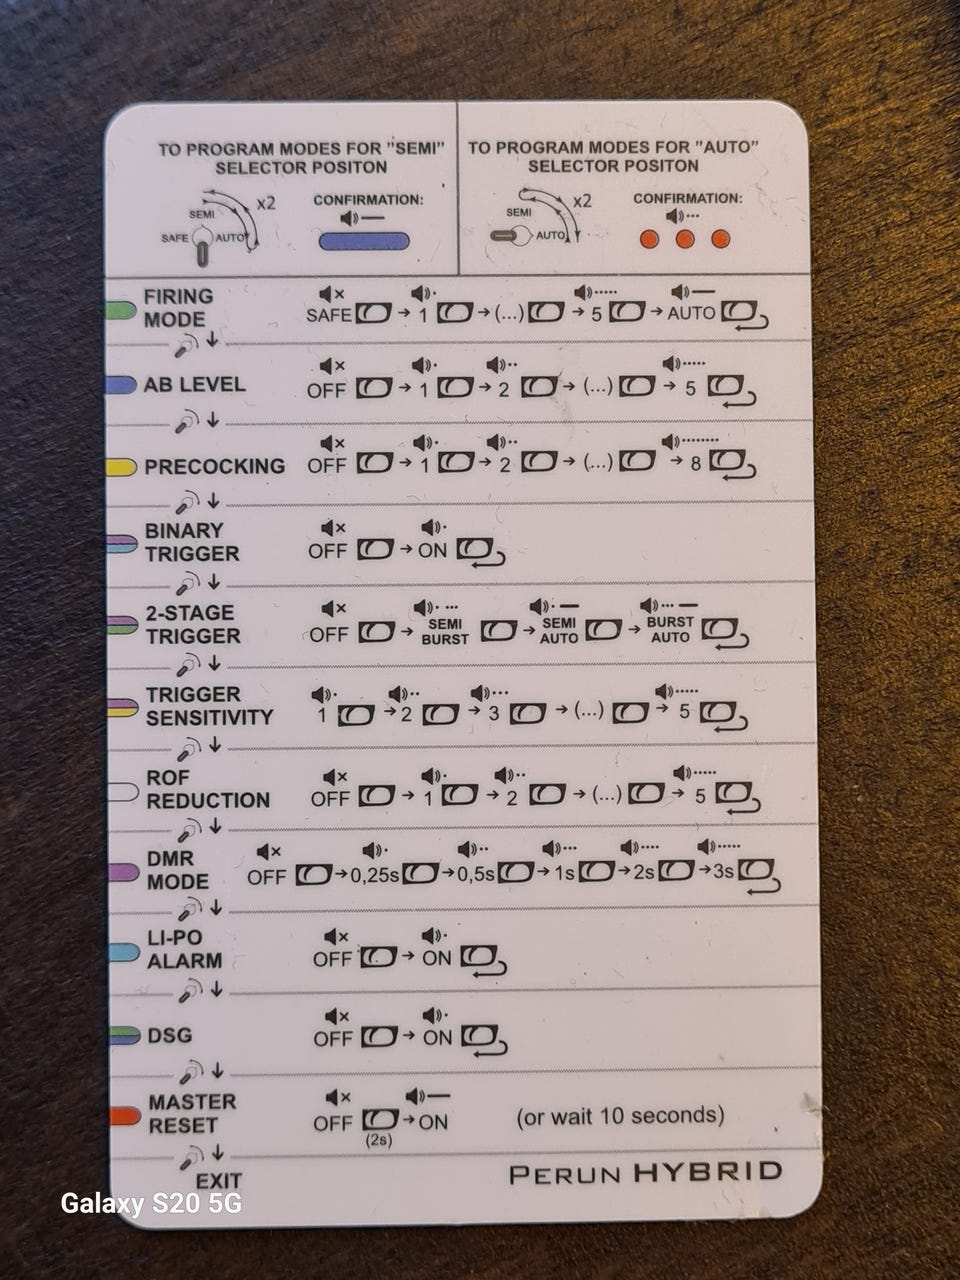 TO PROGRAM MODES FOR "SEMI"
SELECTOR POSITON
x2
SEMI
SAFE AUTO
CONFIRMATION:
TO PROGRAM MODES FOR "AUTO"
SELECTOR POSITON
x2
SEMI
AUTO
CONFIRMATION:
FIRING
MODE
SAFE → 1 → (...) → 5 → AUTO
AB LEVEL
OFF → 1 → 2 → (...) → 5
PRECOCKING
OFF → 1 → 2 → (...) → 8
BINARY
TRIGGER
OFF → ON
2-STAGE
TRIGGER
OFF → SEMI BURST → SEMI AUTO → BURST AUTO
TRIGGER
SENSITIVITY
1 → 2 → 3 → (...) → 5
ROF
REDUCTION
OFF → 1 → 2 → (...) → 5
DMR
MODE
OFF → 0,25s → 0,5s → 1s → 2s → 3s
LI-PO
ALARM
OFF → ON
DSG
OFF → ON
MASTER
RESET
OFF → ON (or wait 10 seconds)
(2s)
EXIT
PERUN HYBRID
Galaxy S20 5G